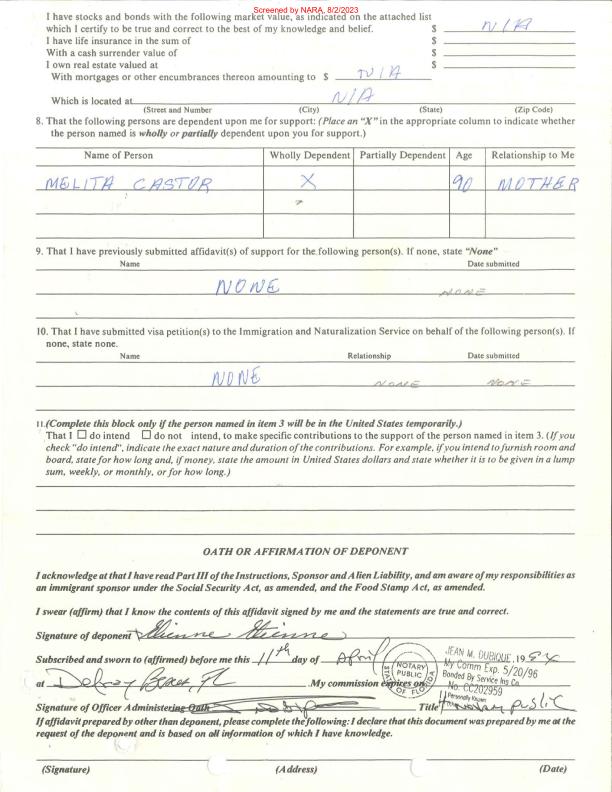 Screened by NARA, 8/2/2023
I have stocks and bonds with the following market value, as indicated on the attached list
which I certify to be true and correct to the best of my knowledge and belief. $ N/A
I have life insurance in the sum of $
With a cash surrender value of $
I own real estate valued at $
With mortgages or other encumbrances thereon amounting to $ N/A
Which is located at N/A
(Street and Number) (City) (State) (Zip Code)
8. That the following persons are dependent upon me for support: (Place an "X" in the appropriate column to indicate whether
the person named is wholly or partially dependent upon you for support.)
Name of Person Wholly Dependent Partially Dependent Age Relationship to Me
MELITA CASTOR X 90 MOTHER
9. That I have previously submitted affidavit(s) of support for the following person(s). If none, state "None"
Name Date submitted
NONE NONE
10. That I have submitted visa petition(s) to the Immigration and Naturalization Service on behalf of the following person(s). If
none, state none.
Name Relationship Date submitted
NONE NONE NONE
11.(Complete this block only if the person named in item 3 will be in the United States temporarily.)
That I ☐ do intend ☐ do not intend, to make specific contributions to the support of the person named in item 3. (If you
check "do intend", indicate the exact nature and duration of the contributions. For example, if you intend to furnish room and
board, state for how long and, if money, state the amount in United States dollars and state whether it is to be given in a lump
sum, weekly, or monthly, or for how long.)
OATH OR AFFIRMATION OF DEPONENT
I acknowledge at that I have read Part III of the Instructions, Sponsor and Alien Liability, and am aware of my responsibilities as
an immigrant sponsor under the Social Security Act, as amended, and the Food Stamp Act, as amended.
I swear (affirm) that I know the contents of this affidavit signed by me and the statements are true and correct.
Signature of deponent Etienne Etienne
Subscribed and sworn to (affirmed) before me this 11th day of April, 19 94
at Delray Beach, FL My commission expires on
NOTARY PUBLIC
STATE OF FLORIDA
JEAN M. DUBIQUE
My Comm Exp. 5/20/96
Bonded By Service Ins Co
No. CC202959
Personally Known
Signature of Officer Administering Oath Title Notary Public
If affidavit prepared by other than deponent, please complete the following: I declare that this document was prepared by me at the
request of the deponent and is based on all information of which I have knowledge.
(Signature) (Address) (Date)